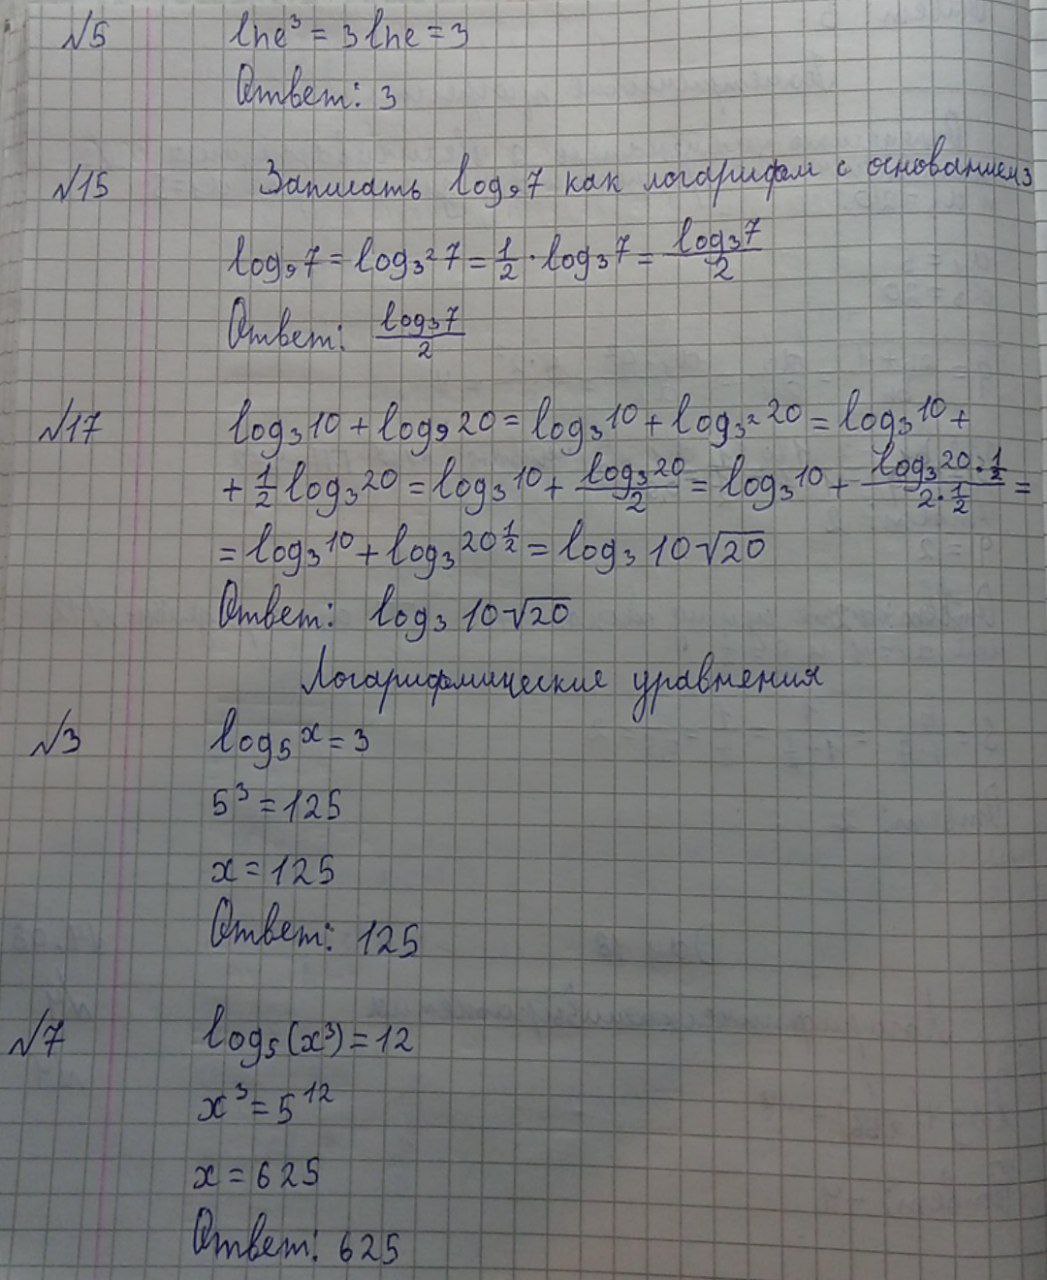 №5 lne³ = 3lne = 3
Ответ: 3
№15 Записать log₉7 как логарифм с основанием 3
log₉7 = log₃²7 = 1/2 · log₃7 = log₃7/2
Ответ: log₃7/2
№17 log₃10 + log₉20 = log₃10 + log₃²20 = log₃10 +
+ 1/2 log₃20 = log₃10 + log₃20/2 = log₃10 + log₃20·1/2 / 2·1/2 =
= log₃10 + log₃20^1/2 = log₃ 10√20
Ответ: log₃ 10√20
Логарифмические уравнения
№3 log₅x = 3
5³ = 125
x = 125
Ответ: 125
№7 log₅(x³) = 12
x³ = 5¹²
x = 625
Ответ: 625